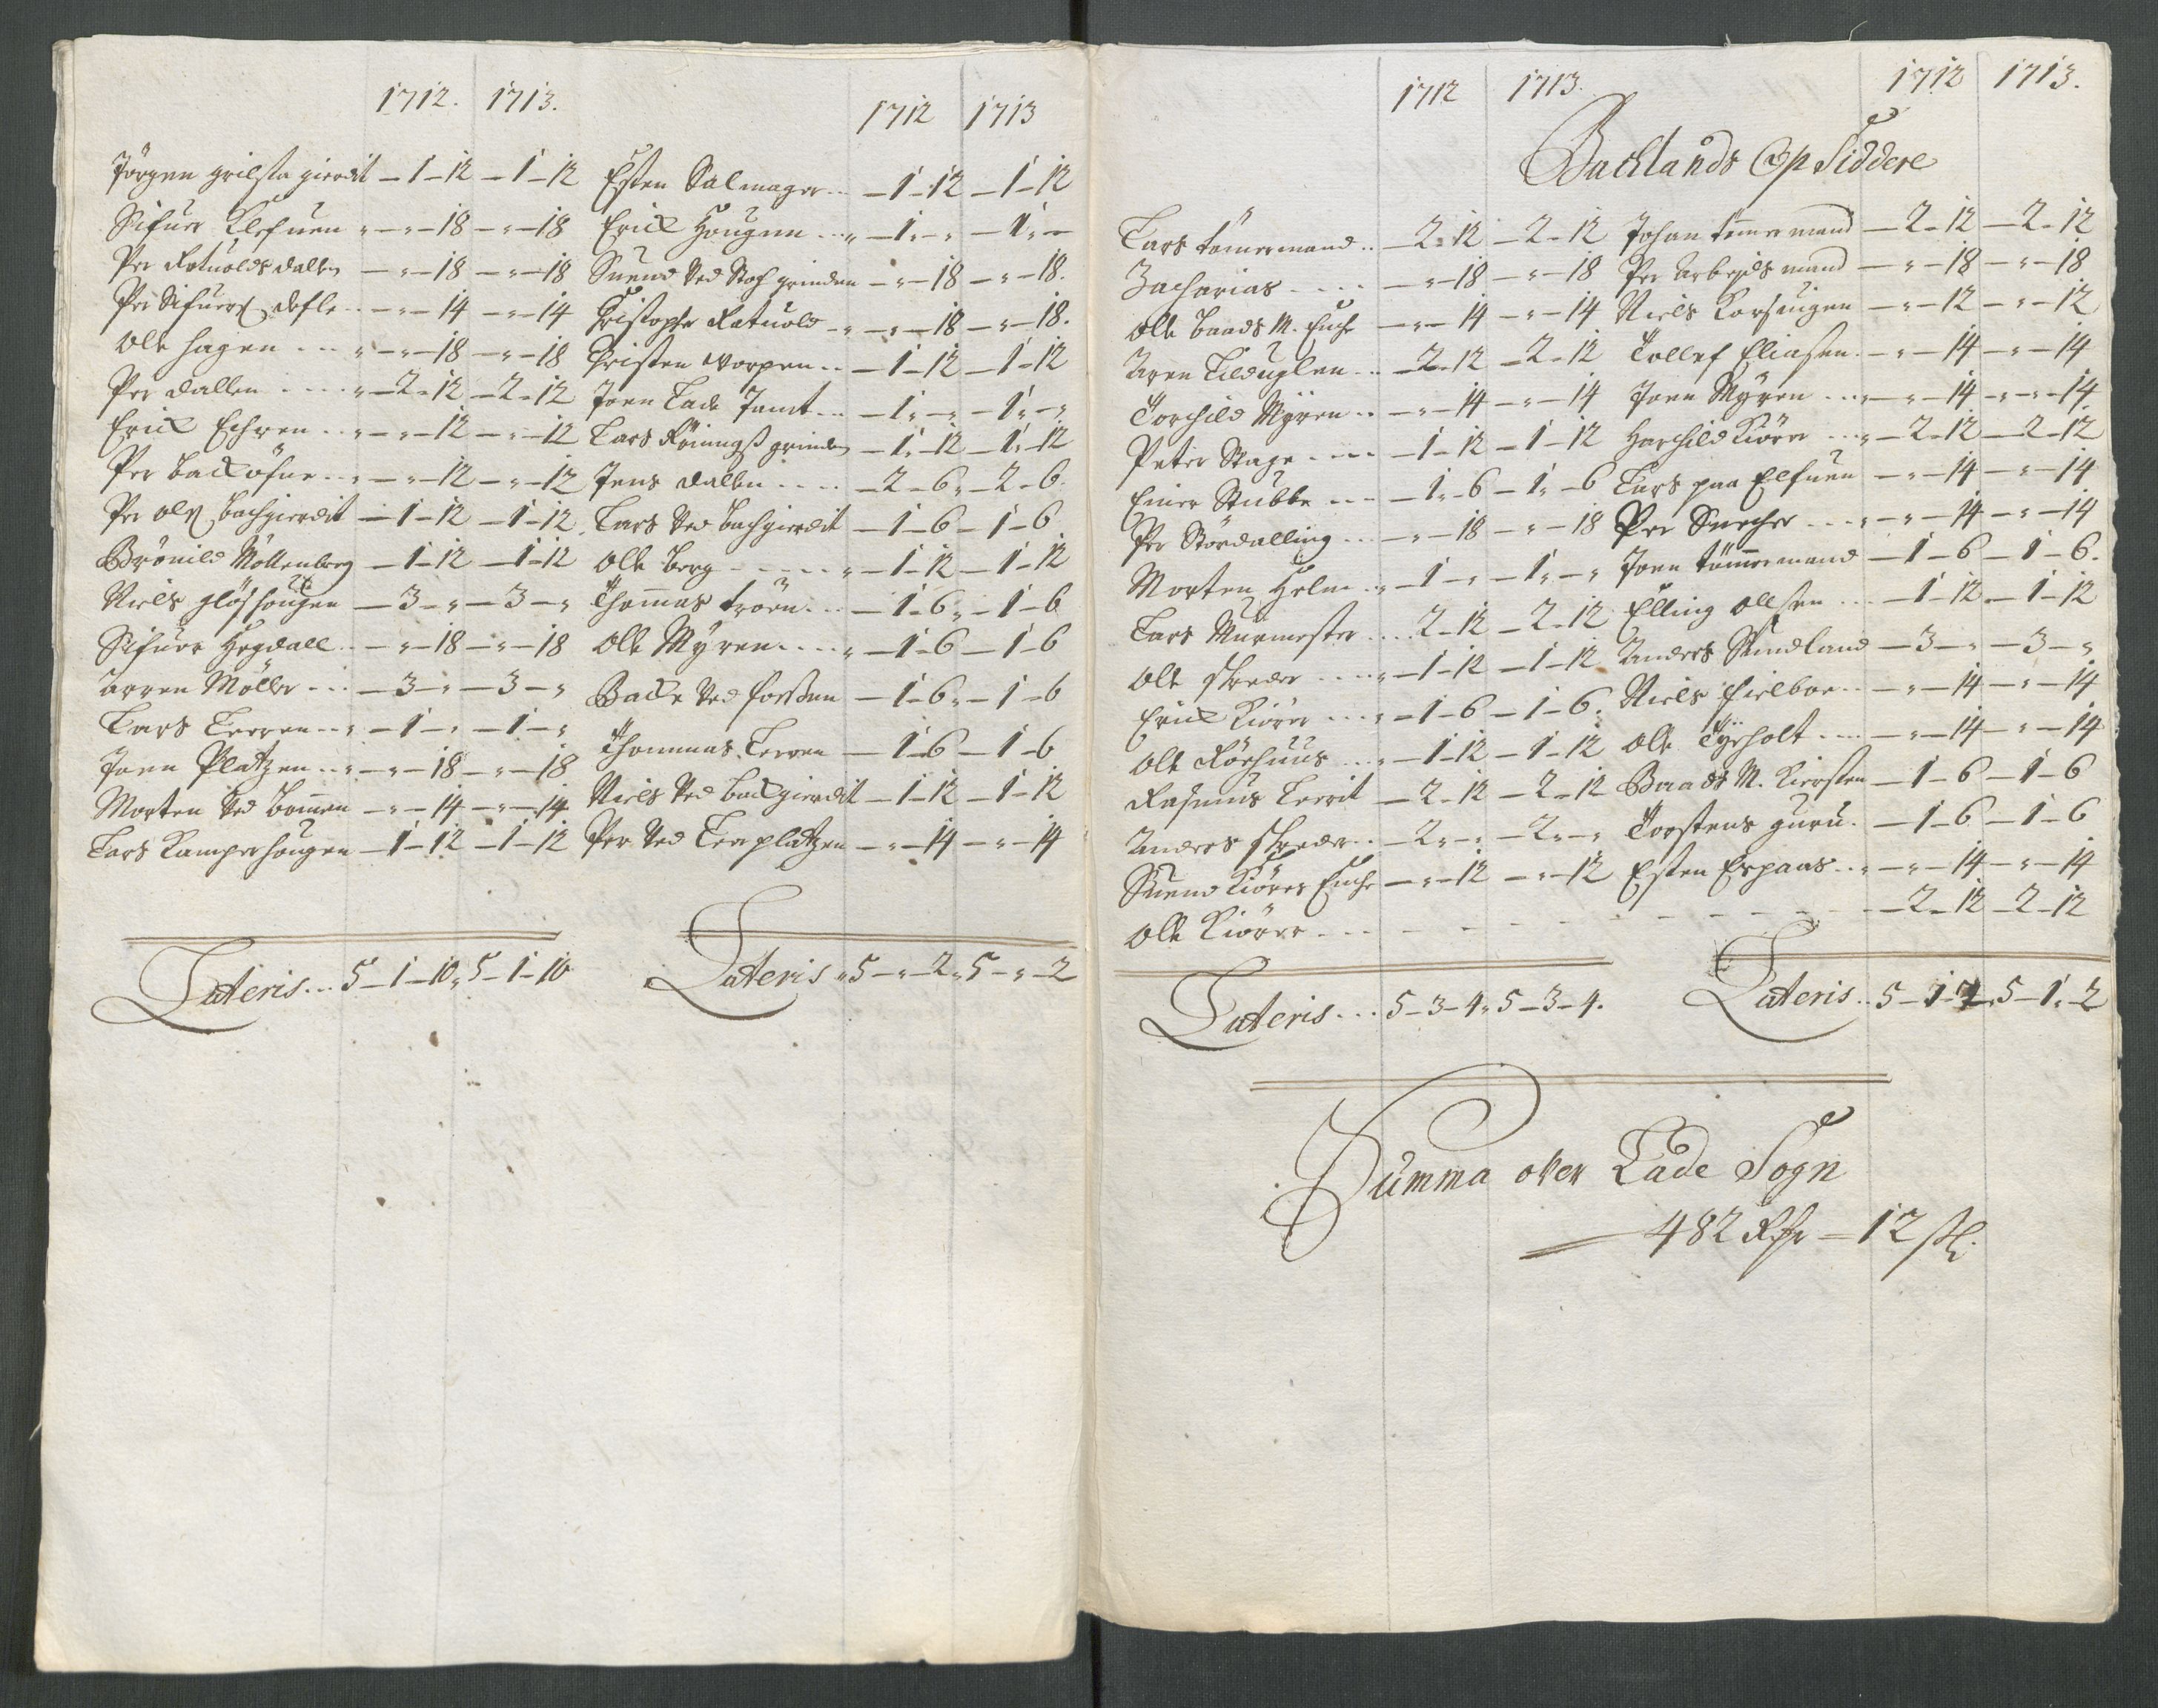 1712. 1713.
Jörgen grilsta gierdit – 1 – 12 – 1 – 12
Sifuer Klefuen „ – „ – 18 – „ – 18
Per Rotuolds dallen – „ – 18 – „ – 18
Per Sifuers – „ – 14 – „ – 14
Ole Hagen ... „ – „ – 18 – „ – 18
Per dallen .... „ – 2 – 12 – 2 – 12
Erick Echren .. „ – „ – 12 – „ – 12
Per Back öfne .. „ – „ – 12 – „ – 12
Per Ols Bachgierdit – 1 – 12 – 1 – 12
Brönild Möllenberg – 1 – 12 – 1 – 12
Niels glöshougen – 3 – „ – 3 – „
Sifuer Hegdall .. – „ – 18 – „ – 18
Arren Möller ... – 3 – „ – 3 – „
Lars Leeren .. „ – 1 – „ – 1 – „
Joen Platzen .. „ – „ – 18 – „ – 18
Morten Ved bommen – „ – 14 – „ – 14
Lars Kamperhougen – 1 – 12 – 1 – 12
Lateris ... 5 – 1 – 10 „ 5 – 1 – 10
1712 1713
Esten Salmager .. – 1 – 12 – 1 – 12
Erick Hougen ... „ – 1 „ – „ – 1 „ –
Suend Ved Stoch grinden – „ – 18 – „ – 18.
Christopher Rotuold „ – „ – 18 – „ – 18.
Christen Worpen .. – 1 – 12 – 1 – 12
Joen Lade Jamt ... – 1 „ – „ – 1 „ – „
Lars Röningß grinden – 1 – 12 – 1 – 12
Jens dallen .... – 2 – 6 „ – 2 – 6.
Lars Ved bachgierdit – 1 – 6 – 1 – 6
Olle berg ..... „ – 1 – 12 – 1 – 12
Thommas tröen ... – 1 – 6 „ – 1 – 6
Olle Myren .... „ – 1 – 6 – 1 – 6
Backe Ved forßen – 1 – 6 „ – 1 – 6
Thommas Leeren – 1 – 6 – 1 – 6
Niels Ved backgierdit – 1 – 12 – 1 – 12
Per Ved Leerplatzen – „ – 14 – „ – 14
Lateris „ 5 – „ – 2 „ 5 – „ – 2
1712 1713. 1712 1713.
Bachlands Op Siddere
Lars tömermand .. – 2 – 12 – 2 – 12
Zacharias .... – „ – 18 – „ – 18
Olle baads M. Enche – „ – 14 – „ – 14
Aren Lilduglen .. – 2 – 12 – 2 – 12
Torchild Myren .. – „ – 14 – „ – 14
Peter Stage .... – 1 – 12 – 1 – 12
Einer Stubbe ... – 1 „ – 6 – 1 „ – 6
Per Stördalling ... – „ – 18 – „ – 18
Morten Holm .. „ – 1 – „ – 1 „ – „
Lars Murmester .... 2 – 12 – 2 – 12
Ole skreder .... „ – 1 – 12 – 1 – 12
Erick Kiörer ... „ – 1 – 6 – 1 – 6.
Ole Rörhuus ... „ – 1 – 12 – 1 – 12
Rasmus Leerit – 2 – 12 – 2 – 12
Anders skreder .. – 2 „ – „ – 2 „ – „
Suend Kiörers Enche – „ – 12 – „ – 12
Olle Kiörer ....
Lateris ... 5 – 3 – 4 „ 5 – 3 – 4.
Johan tömermand – 2 – 12 – 2 – 12
Per Arbejdsmand – „ – 18 – „ – 18
Niels Korsuigen – „ – 12 – „ – 12
Tollef Eliasen . – „ – 14 – „ – 14
Joen Myren ... „ – „ – 14 – „ – 14
Harchild Kiörer ... „ – 2 – 12 – 2 – 12
Lars paa Elfuen – „ – 14 – „ – 14
Per Snecher ... „ – „ – 14 – „ – 14
Joen tömmermand – 1 – 6 – 1 – 6.
Elling Ollsen ... – 1 – 12 – 1 – 12
Anders Sundland – 3 – „ – 3 – „
Niels Fielboe .. – „ – 14 – „ – 14
Ole Tyrholt .... – „ – 14 – „ – 14
Baads M. Kiersten – 1 – 6 – 1 – 6
Torstens guru . – 1 – 6 – 1 – 6
Esten Espaas .. „ – „ – 14 – „ – 14
– 2 – 12 – 2 – 12
Lateris .. 5 – 1 – 2 „ 5 – 1 „ – 2
Summa over Lade Sogn
482 Rdr – 12 ß